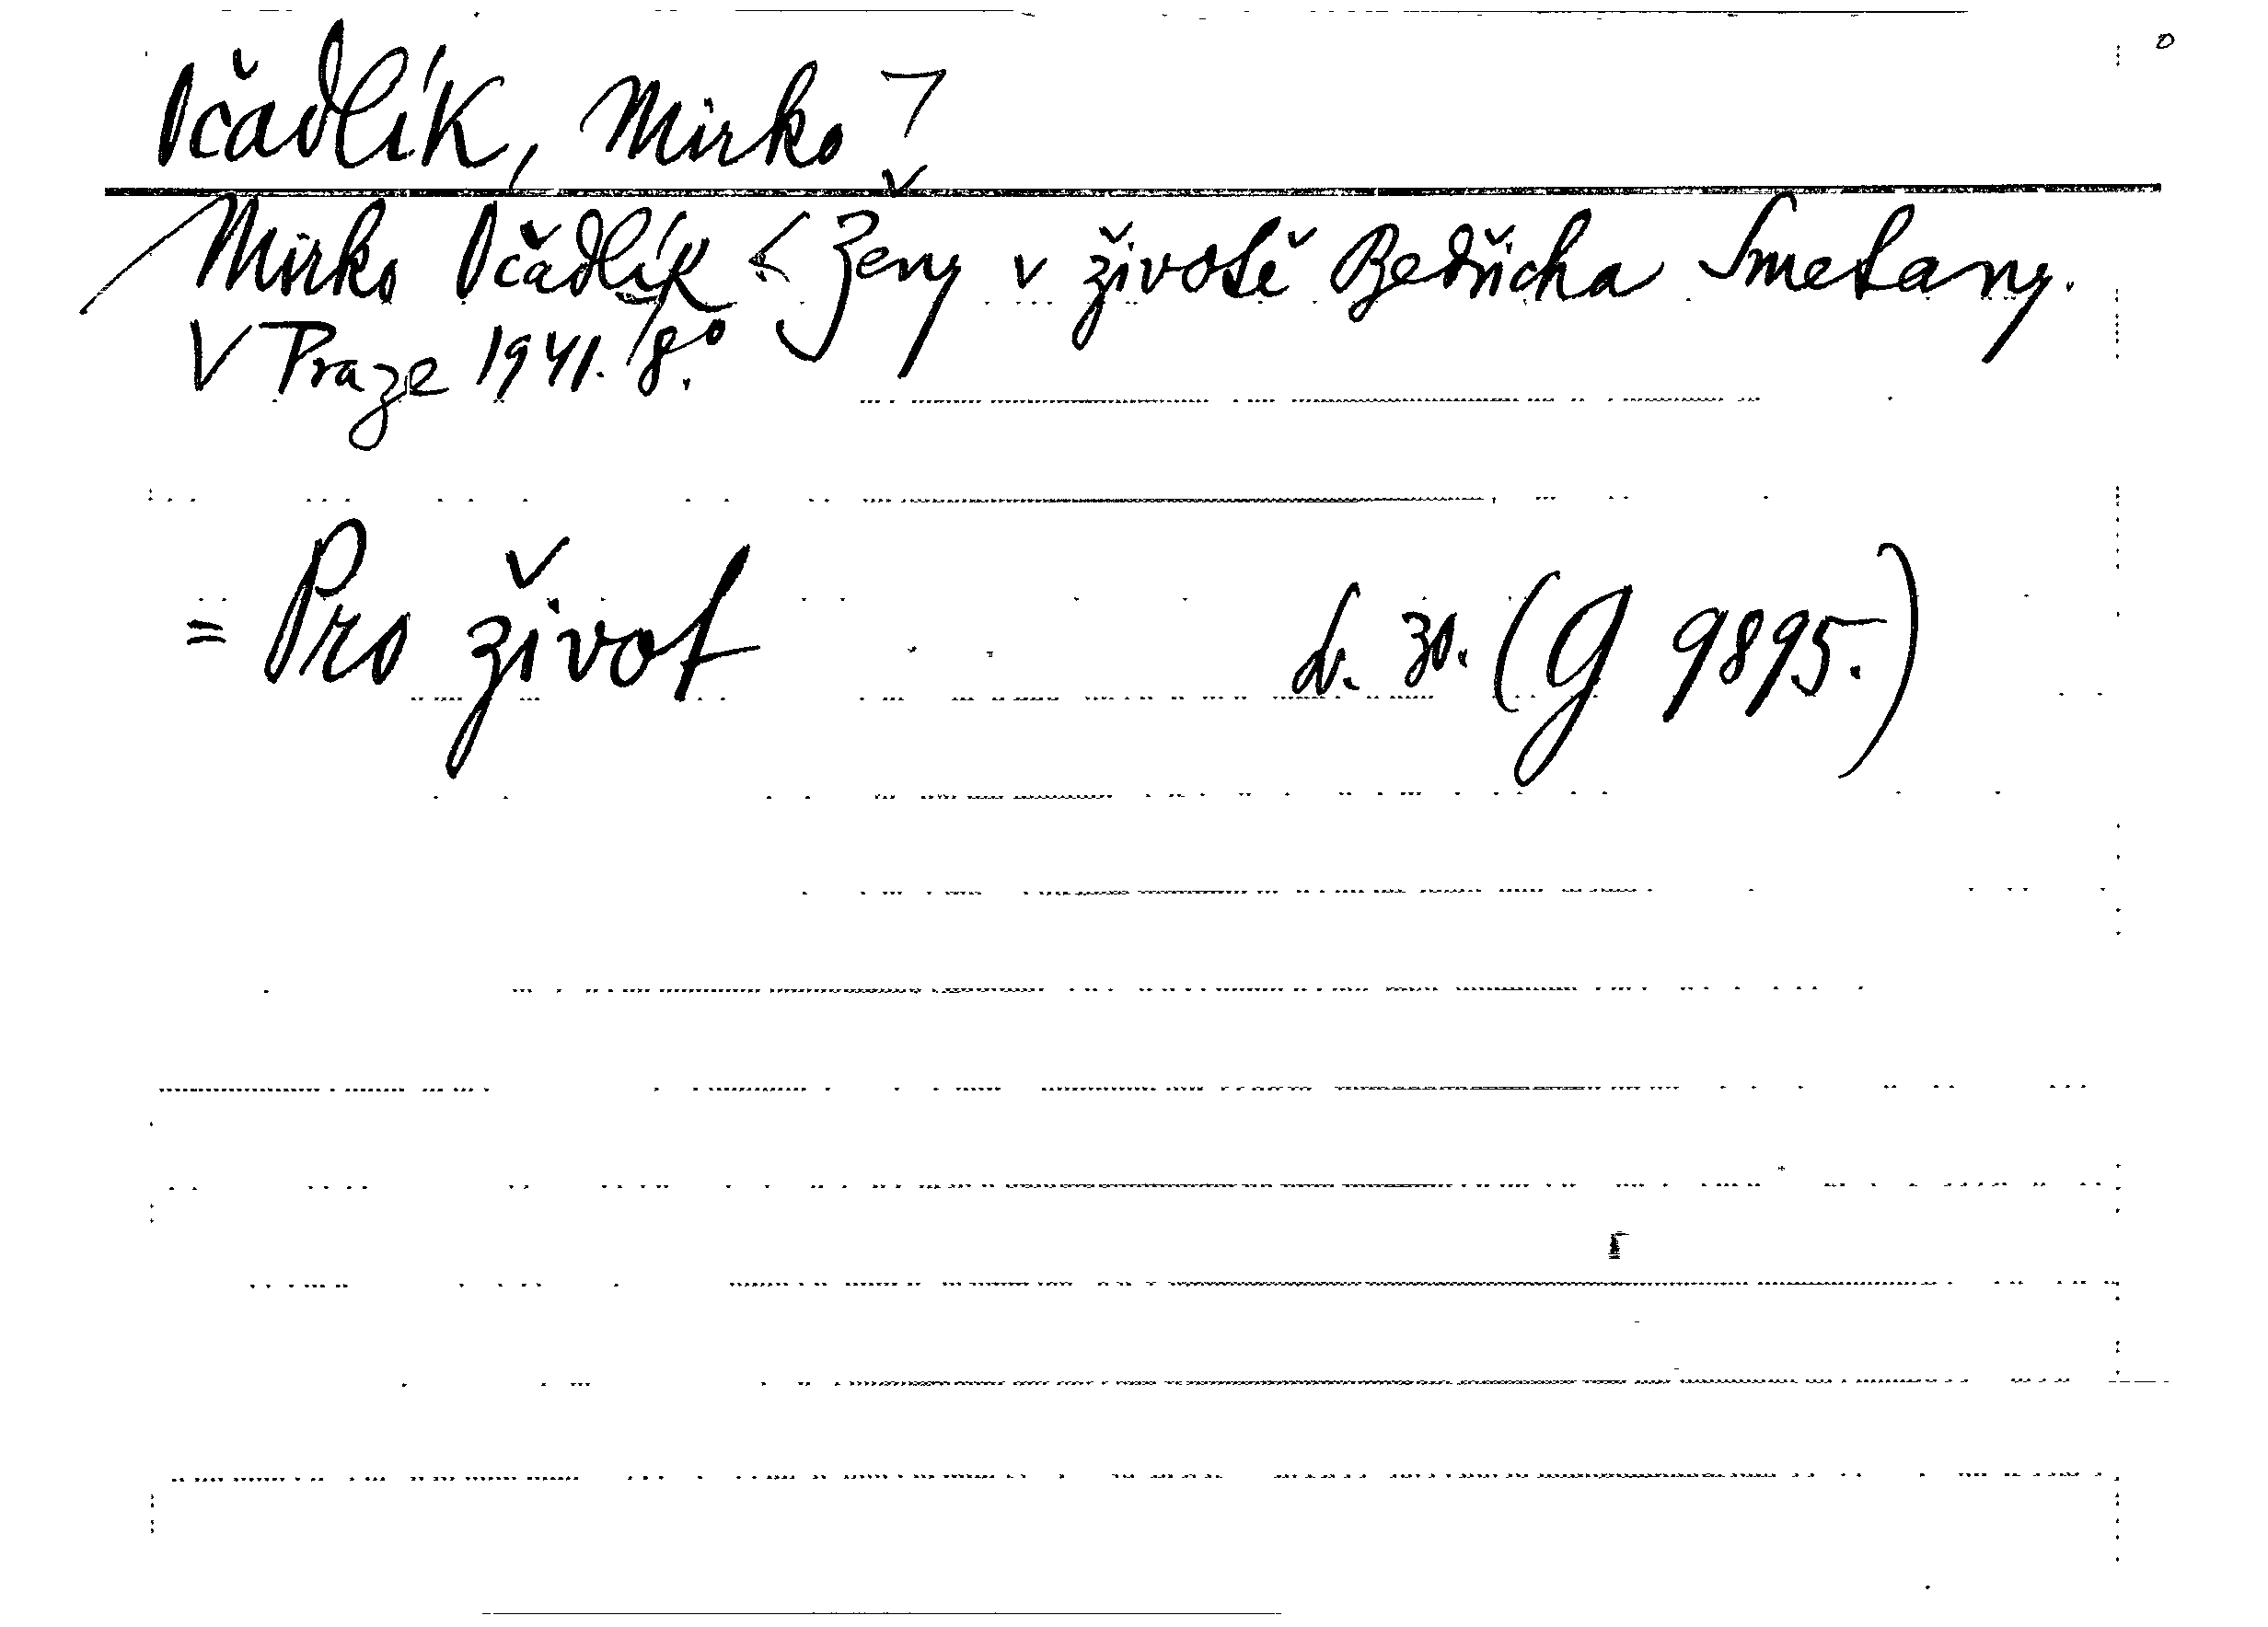 Očadlík, Mirko
Mirko Očadlík Ženy v životě Bedřicha Smetany.
V Praze 1941. 8°
= Pro život 30. (G 9895.)